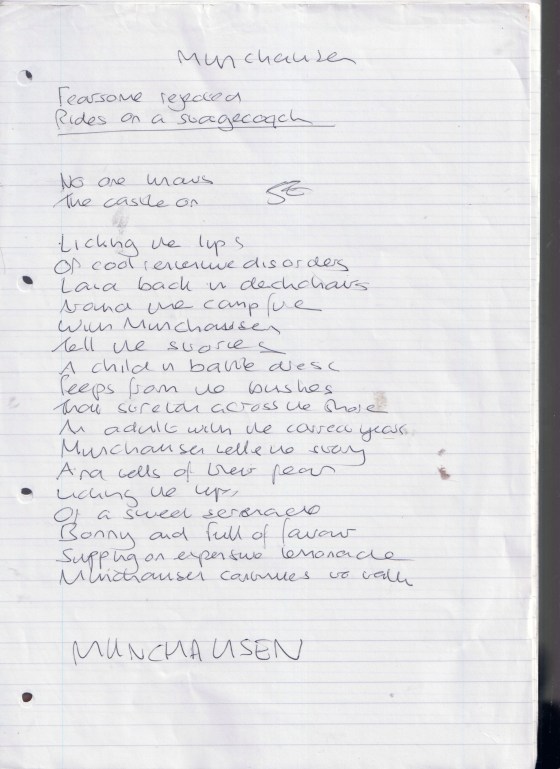 Munchausen
Fearsome rejected
Rides on a stagecoach
No one knows
The castle on
Licking the lips
Of cool reverie disorders
Laid back in deckchairs
Around the campfire
With Munchausen
Tell the stories
A child in battle dress
Peeps from the bushes
That stretch across the shore
An adult with the correct years
Munchausen tells the story
And tells of their fear
Licking the lips
Of a sweet serenade
Bonny and full of favour
Supping on expensive lemonade
Munchausen continues to talk
MUNCHAUSEN